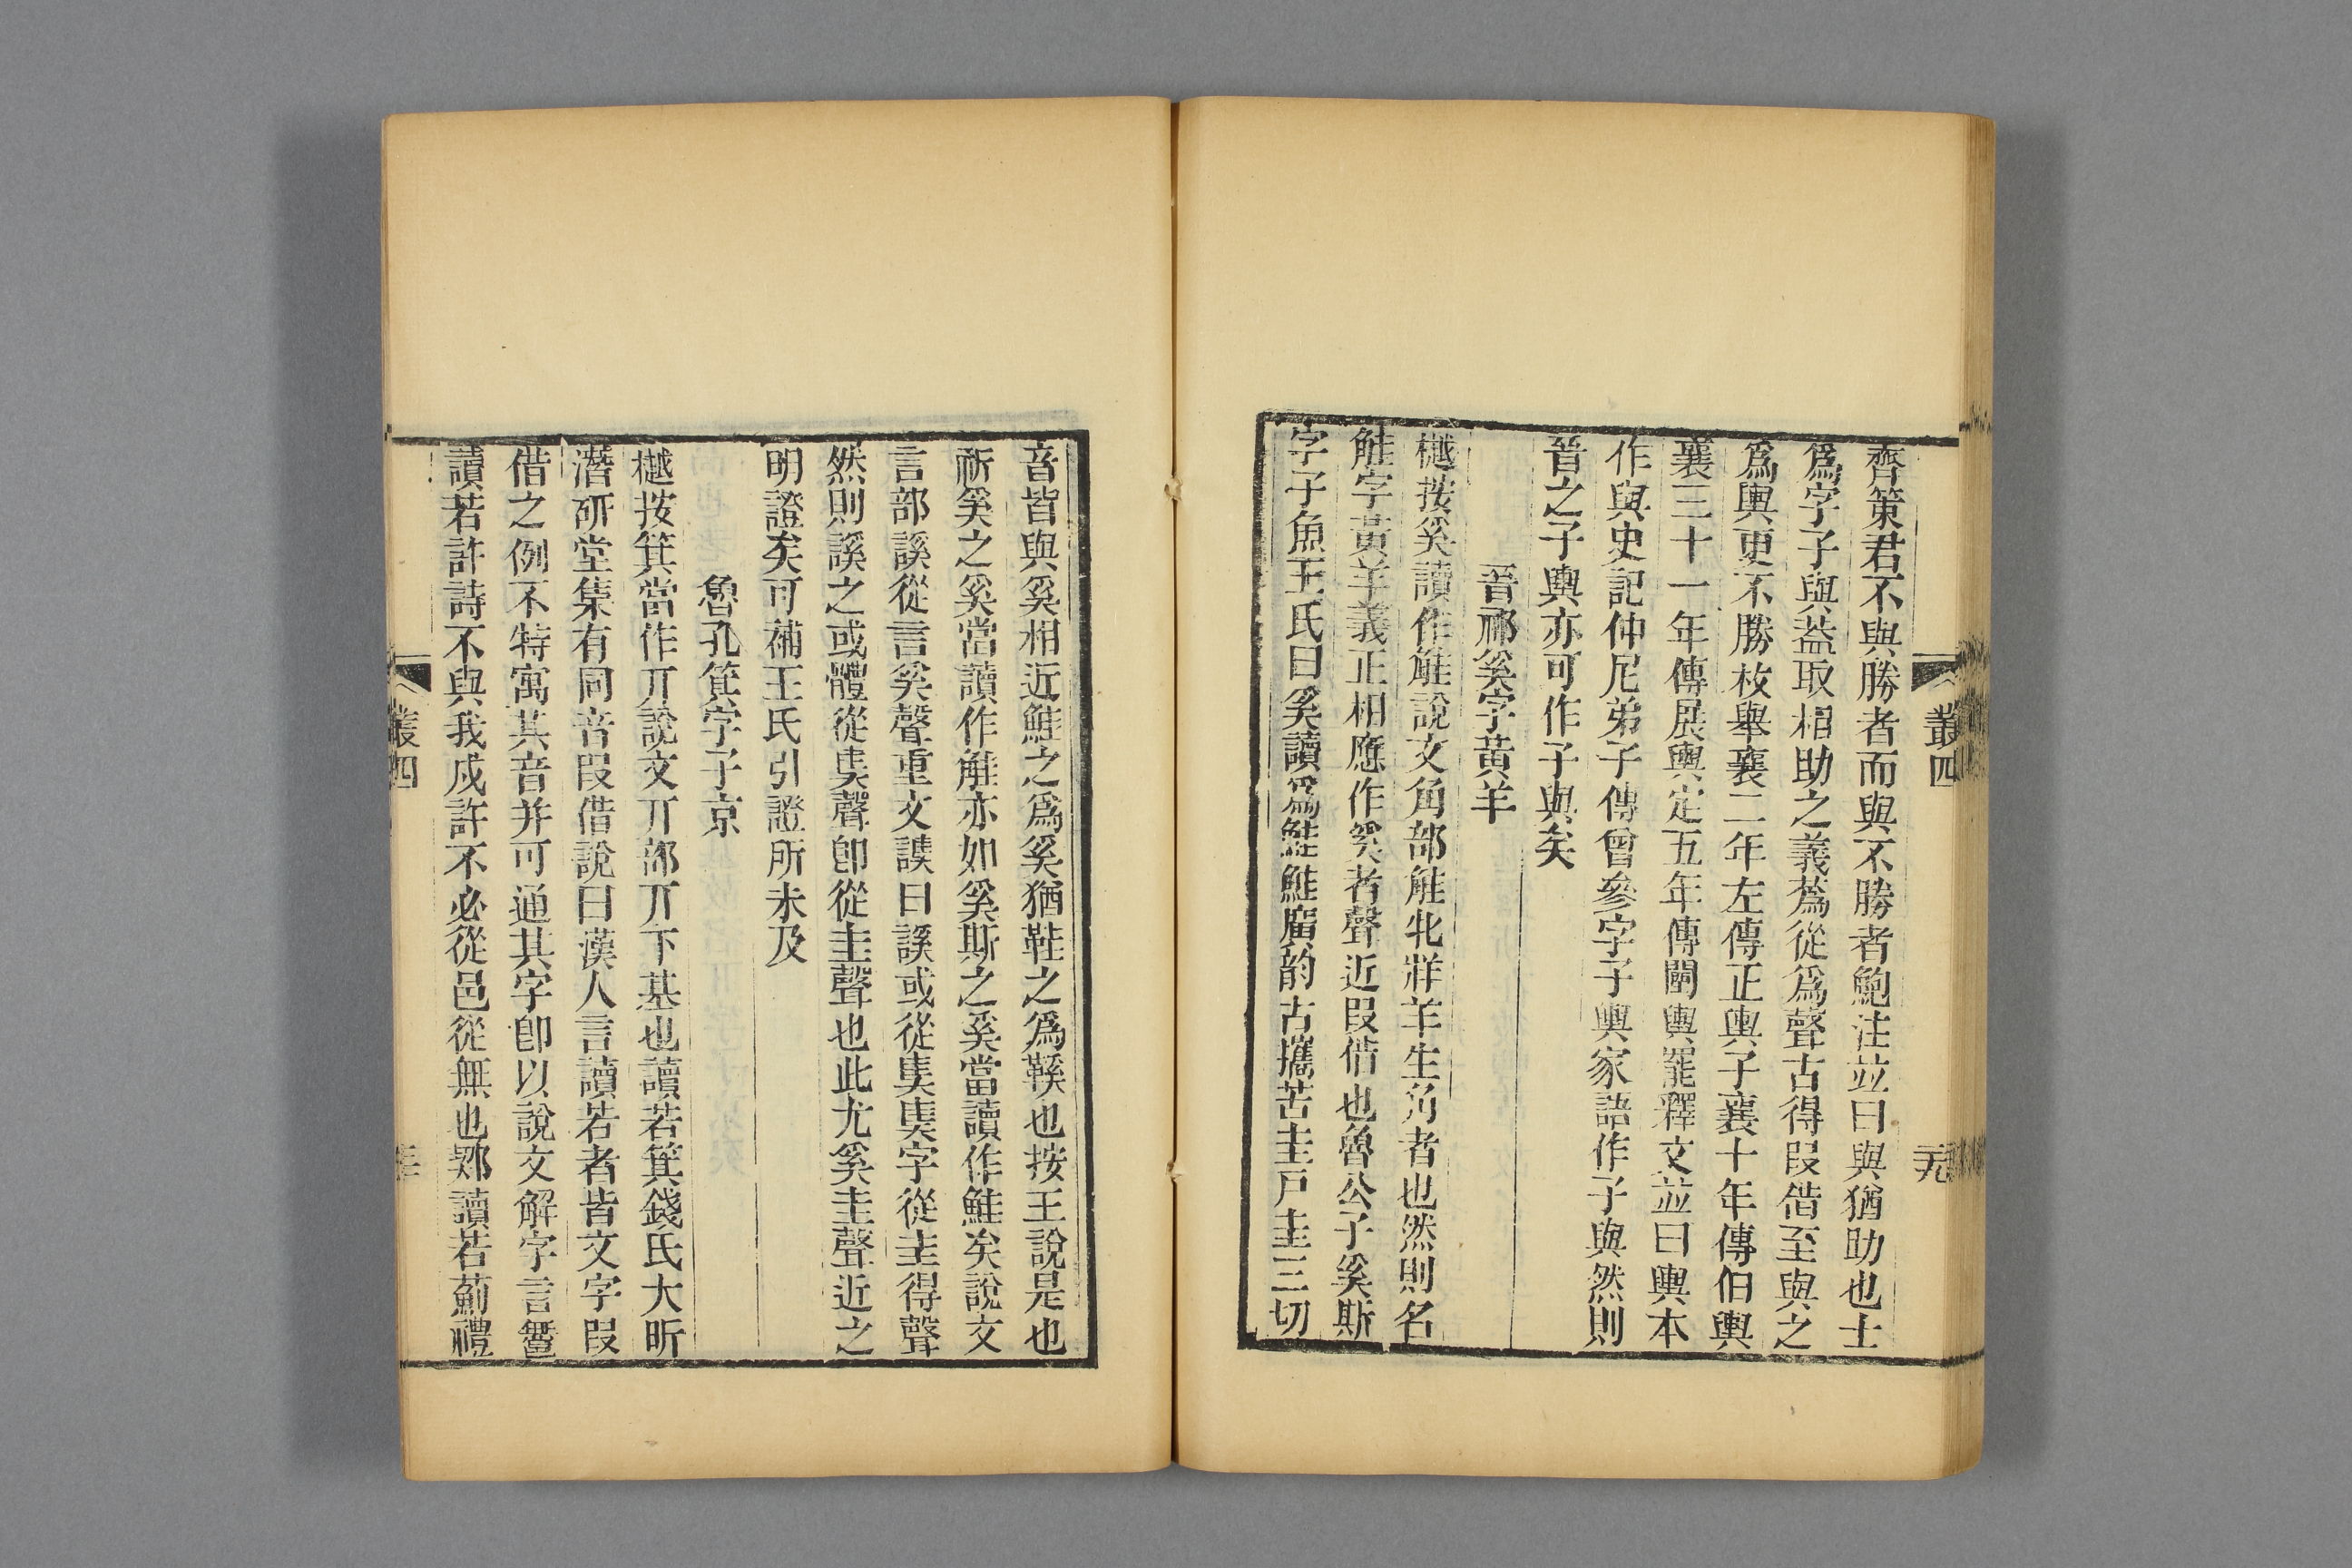 叢四
齊策君不與勝者而與不勝者鮑注並曰與猶助也士
爲字子與葢取相助之義蔿從爲聲古得叚借至與之
爲輿更不勝枚舉襄二年左傳正輿子襄十年傳伯輿
襄三十一年傳展輿定五年傳闉輿罷釋文並曰輿本
作與史記仲尼弟子傳曾參字子輿家語作子與然則
晉之子輿亦可作子與矣
晉祁奚字黃羊
樾按奚讀作觟說文角部觟牝牂羊生角者也然則名
觟字黃羊義正相應作奚者聲近叚借也魯公子奚斯
字子魚王氏曰奚讀爲鮭鮭廣韵古攜苦圭戸圭三切
音皆與奚相近鮭之爲奚猶鞋之爲鞵也按王說是也
祈奚之奚當讀作觟亦如奚斯之奚當讀作鮭矣說文
言部謑從言奚聲重文䜁曰謑或從𡙇𡙇字從圭得聲
然則謑之或體從𡙇聲卽從圭聲也此尤奚圭聲近之
明證矣可補王氏引證所未及
魯孔箕字子京
樾按箕當作丌說文丌部丌下基也讀若箕錢氏大昕
潛研堂集有同音叚借說曰漢人言讀若者皆文字叚
借之例不特寓其音并可通其字卽以說文解字言鄦
讀若許詩不與我戍許不必從邑從無也鄈讀若薊禮
叢四